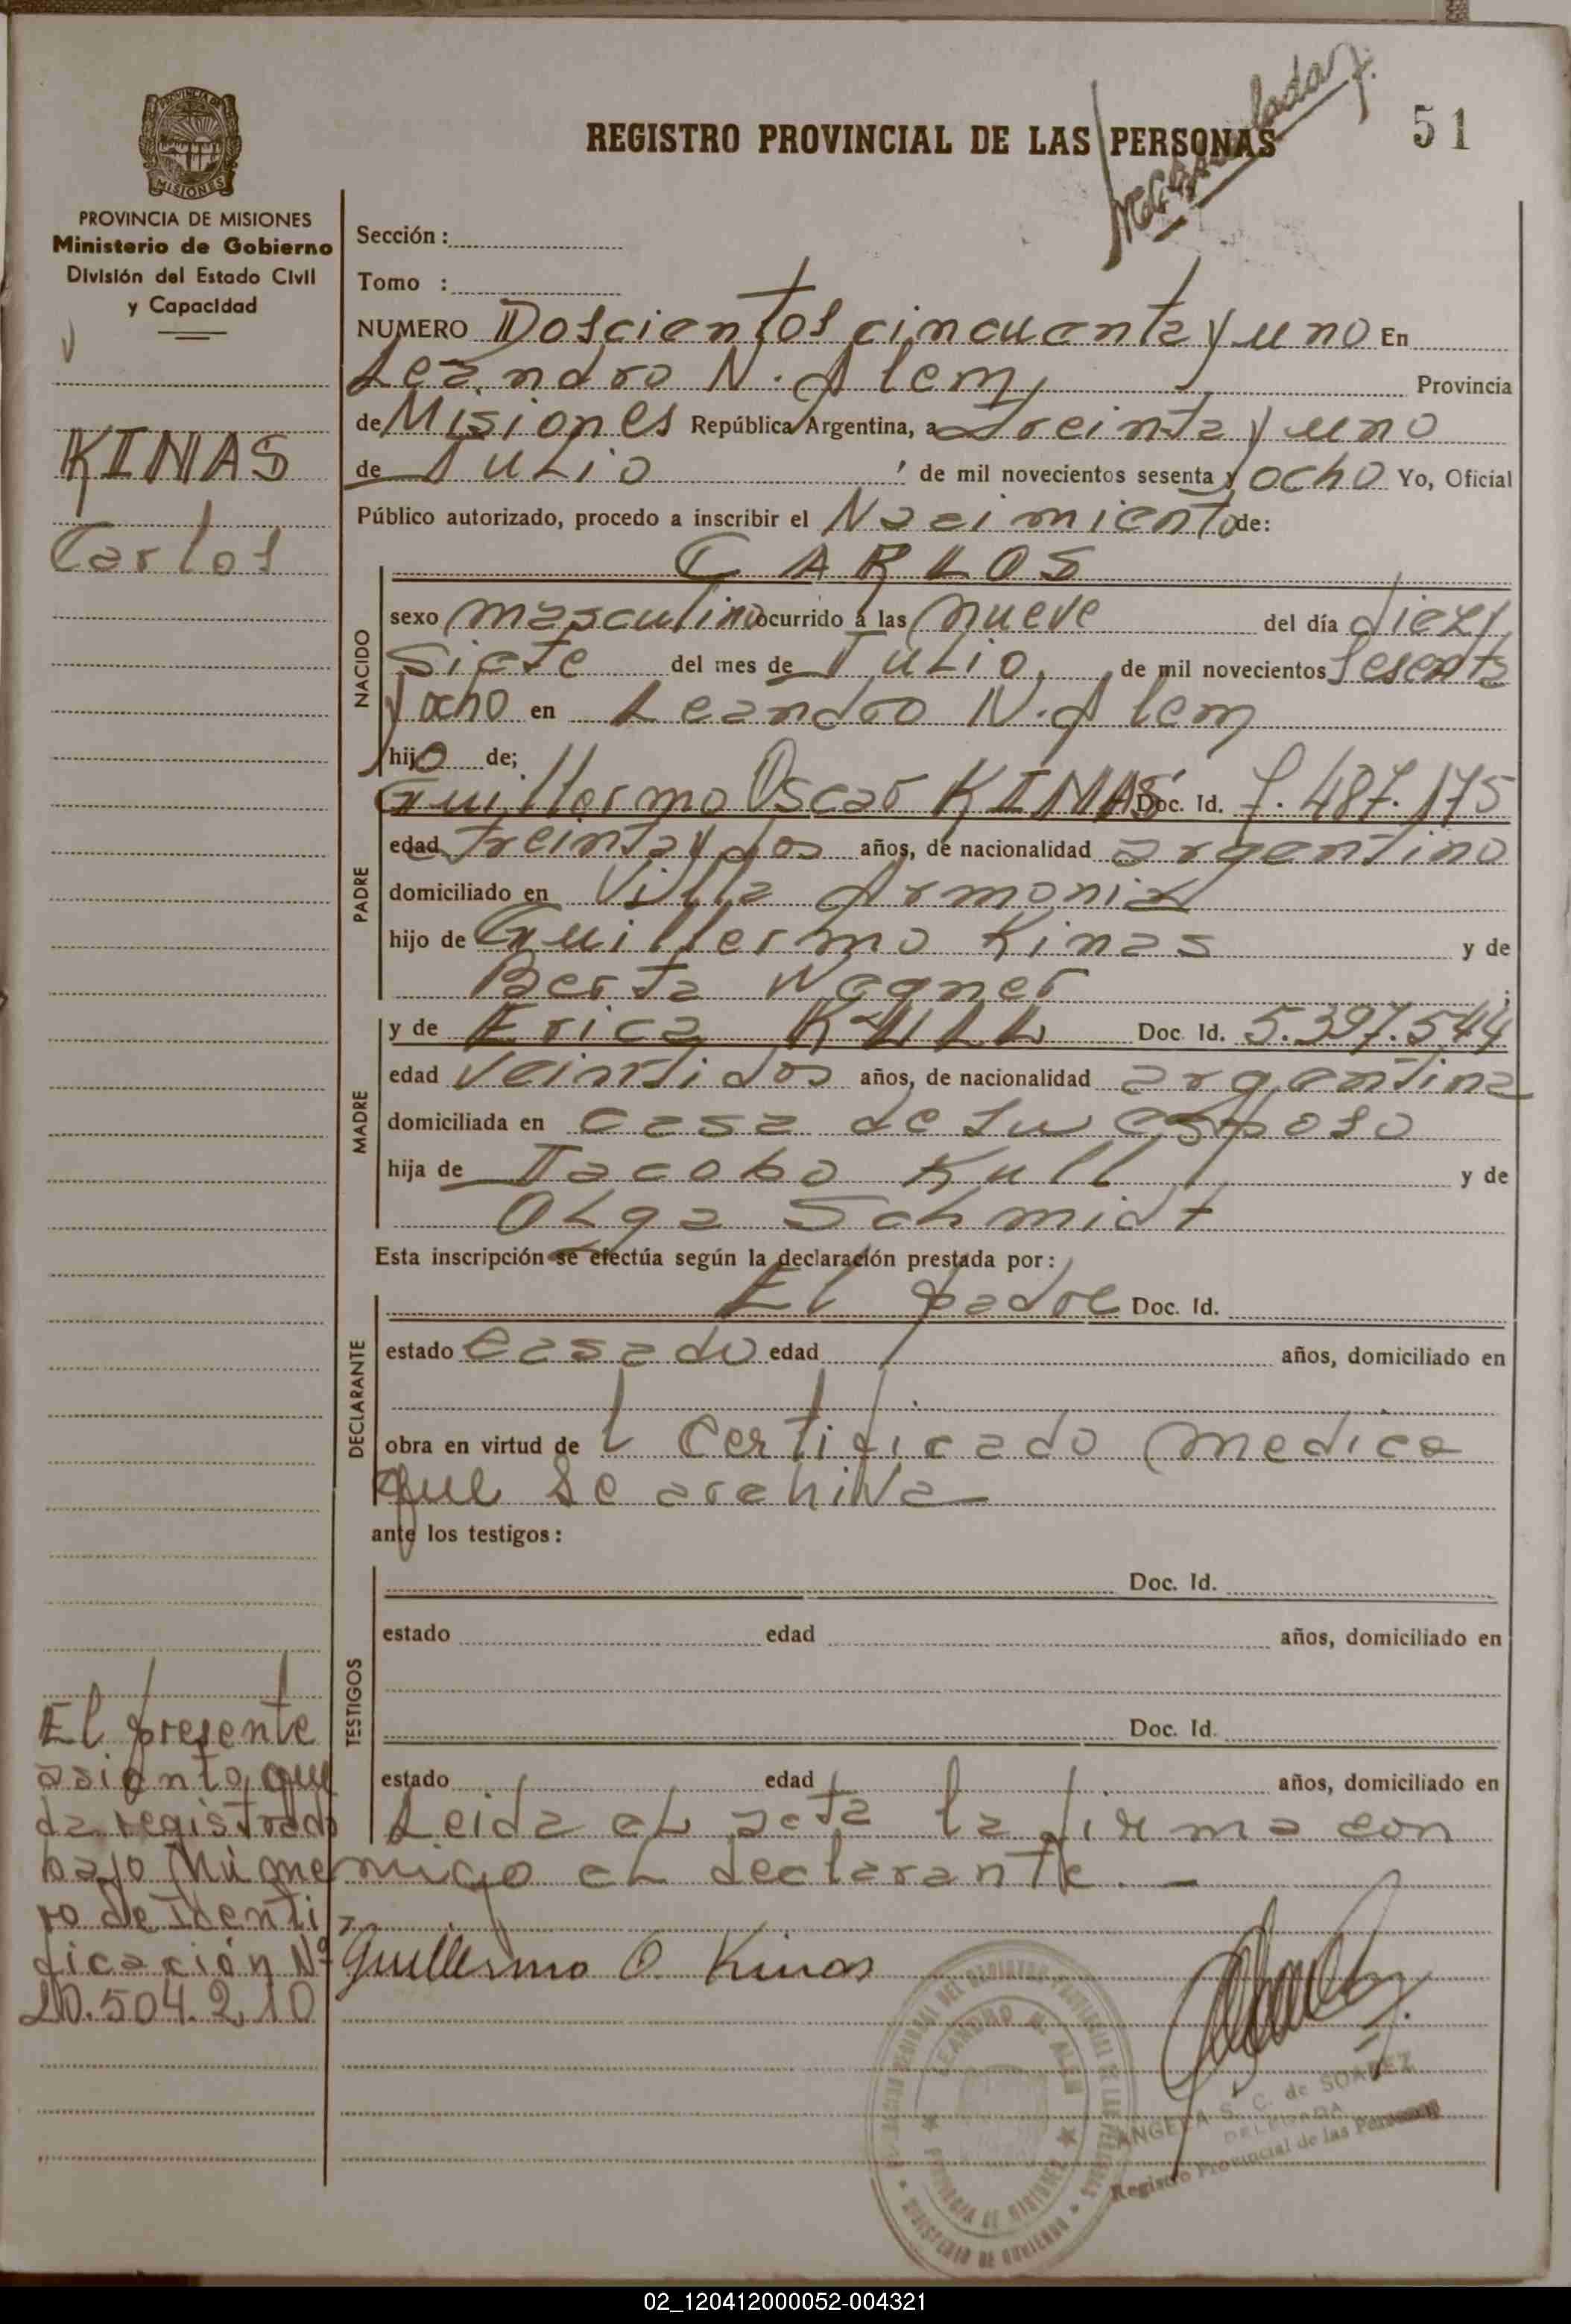 REGISTRO PROVINCIAL DE LAS PERSONAS
51
PROVINCIA DE MISIONES
Ministerio de Gobierno
División del Estado Civil
y Capacidad
KINAS
Carlos
El presente
asiento que
da registrado
bajo Núme
ro de Identi
ficación Nº
20.504.210
Sección :
Tomo :
NUMERO Doscientos cincuenta y uno En
Leandro N. Alem Provincia
de Misiones República Argentina, a treinta y uno
de Julio de mil novecientos sesenta y ocho Yo, Oficial
Público autorizado, procedo a inscribir el Nacimiento de:
CARLOS
NACIDO
sexo masculino ocurrido a las nueve del día diez y
siete del mes de Julio de mil novecientos sesenta
y ocho en Leandro N. Alem
hijo de;
PADRE
Guillermo Oscar KINAS Doc. Id. 7.487.175
edad treinta y dos años, de nacionalidad argentino
domiciliado en Villa Armonia
hijo de Guillermo Kinas y de
Berta Wagner
MADRE
y de Erica KULL Doc. Id. 5.397.544
edad veintidos años, de nacionalidad argentina
domiciliada en casa de su esposo
hija de Jacobo Kull y de
Olga Schmidt
Esta inscripción se efectúa según la declaración prestada por:
DECLARANTE
El padre Doc. Id.
estado casado edad años, domiciliado en
obra en virtud de l certificado medico
que se archiva
ante los testigos:
TESTIGOS
Doc. Id.
estado edad años, domiciliado en
Doc. Id.
estado edad años, domiciliado en
Leida el acta la firma con
migo el declarante. -
Guillermo O. Kinas
LEANDRO N. ALEM
PROVINCIA DE MISIONES
MINISTERIO DE GOBIERNO
ANGELA S. C. de SOAREZ
DELEGADA
Registro Provincial de las Personas
02_120412000052-004321